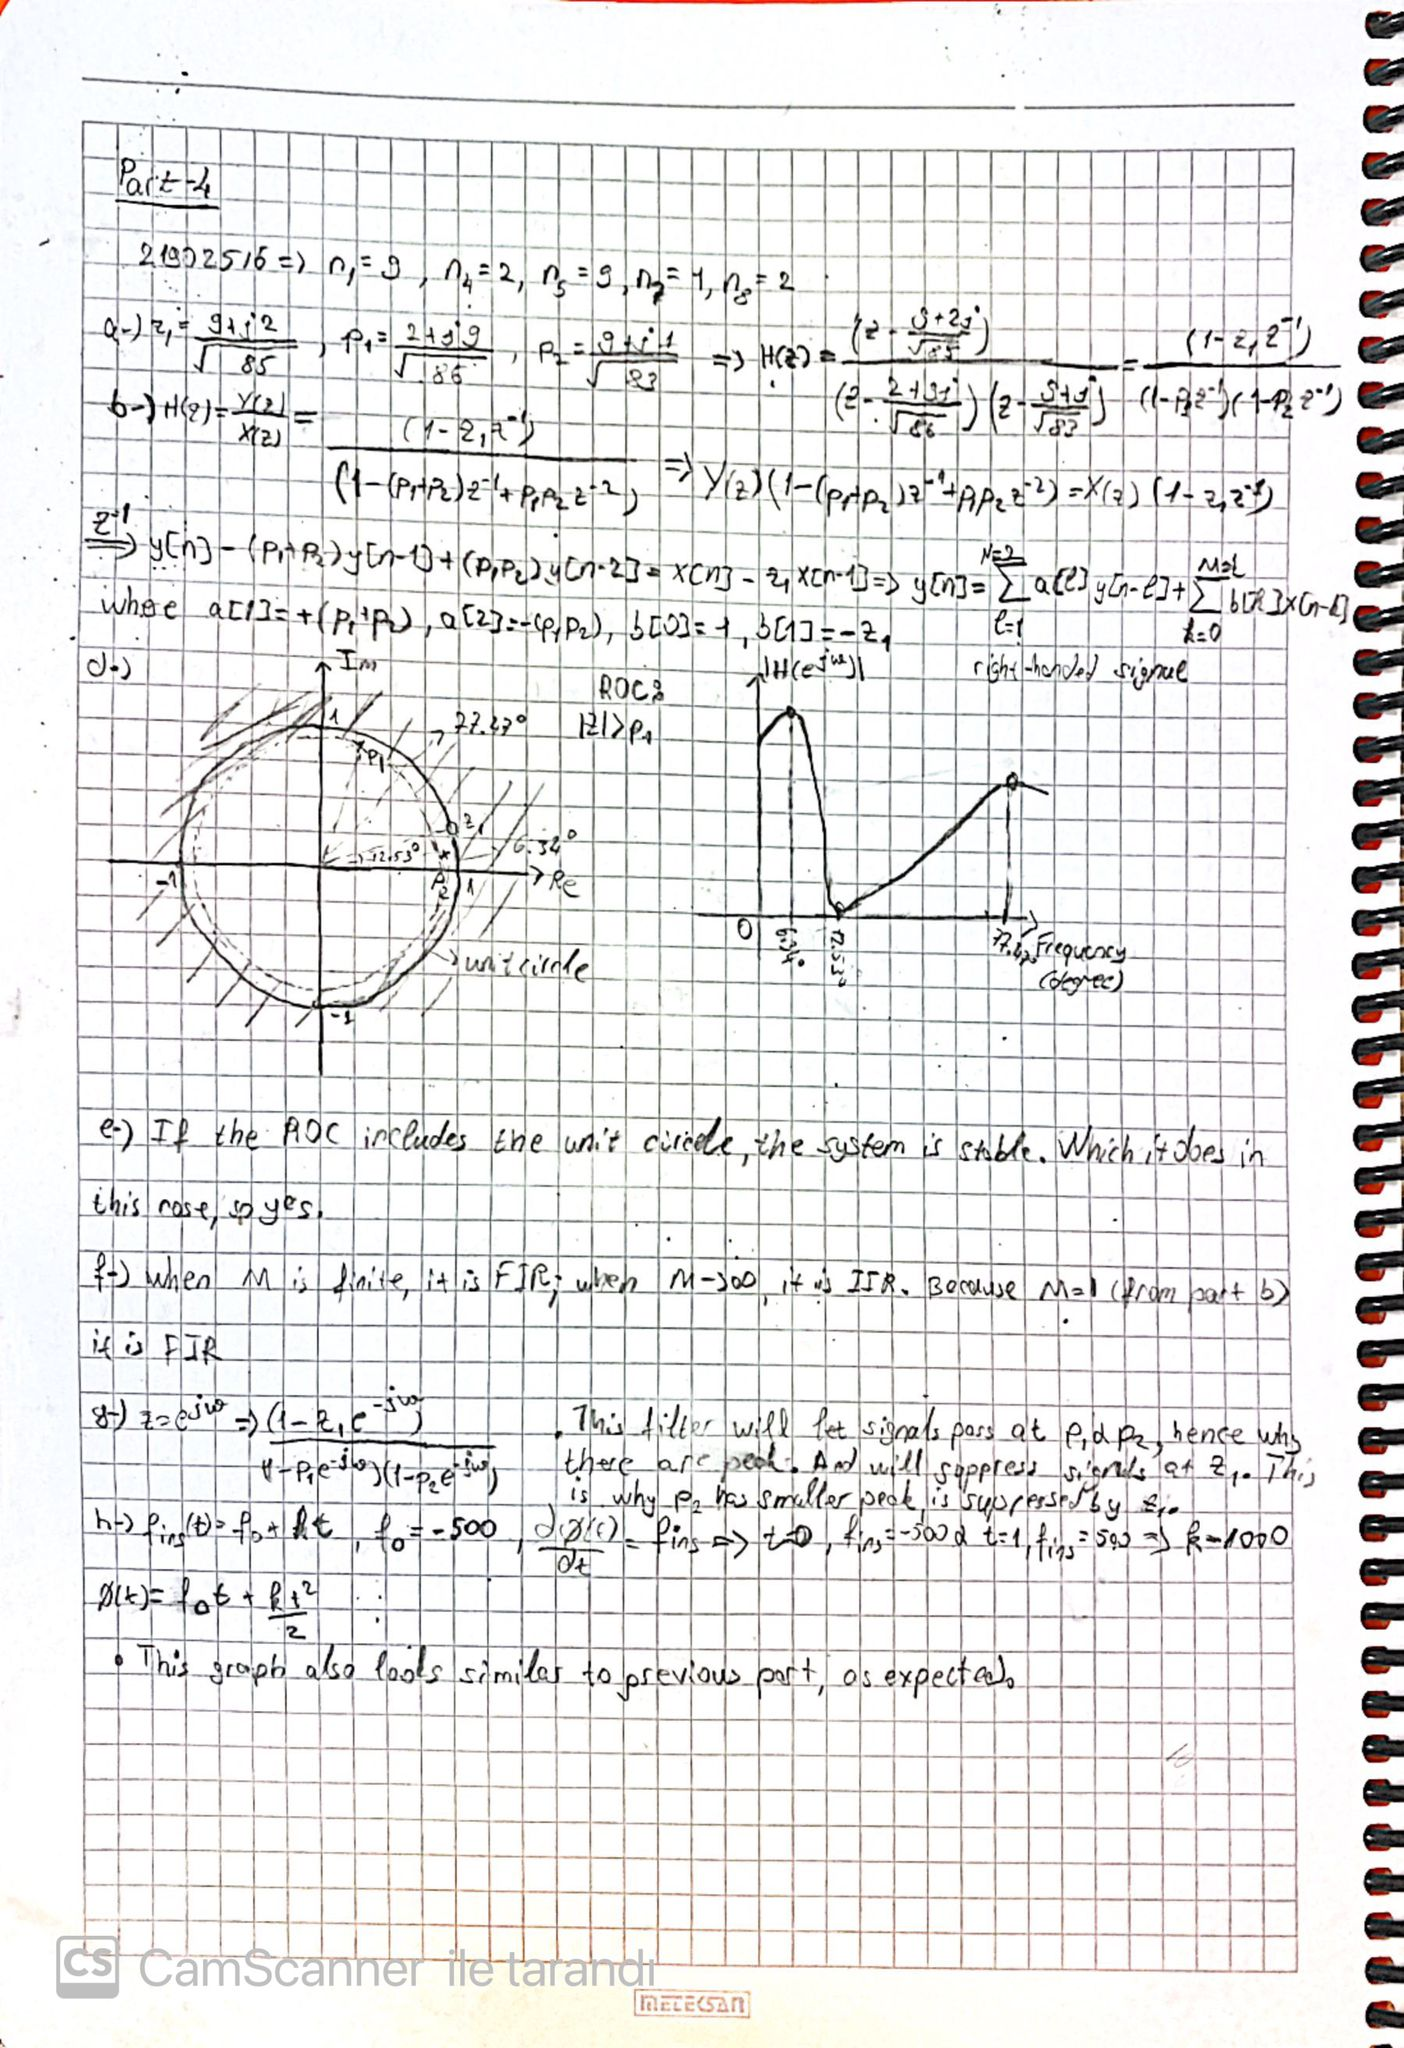 Part-4
21902516 => n₁=9, n₄=2, n₅=9, n₇=1, n₈=2
a-) z₁ = (9+j2)/√85, p₁ = (2+j9)/√86, p₂ = (9+j1)/√83 => H(z) = (z - (9+2j)/√85) / ((z - (2+9j)/√86)(z - (9+j)/√83)) = (1-z₁z⁻¹) / ((1-p₁z⁻¹)(1-p₂z⁻¹))
b-) H(z) = Y(z)/X(z) = (1-z₁z⁻¹) / (1-(p₁+p₂)z⁻¹+p₁p₂z⁻²) => Y(z)(1-(p₁+p₂)z⁻¹+p₁p₂z⁻²) = X(z)(1-z₁z⁻¹)
z⁻¹ => y[n] - (p₁+p₂)y[n-1] + (p₁p₂)y[n-2] = x[n] - z₁x[n-1] => y[n] = Σ_{l=1}^{N=2} a[l]y[n-l] + Σ_{k=0}^{M=1} b[k]x[n-k]
where a[1]=+(p₁+p₂), a[2]=-(p₁p₂), b[0]=1, b[1]=-z₁
right-handed signal
d-)
Im
ROC:
|z|>p₁
77.47°
1
p₁
z₁
12.53°
6.34°
-1
p₂
1
Re
unit circle
-1
|H(e^{jw})|
0
6.34°
12.53°
77.47°
Frequency
(degree)
e-) If the ROC includes the unit circle, the system is stable. Which it does in
this case, so yes.
f-) when M is finite, it is FIR; when M->∞, it is IIR. Because M=1 (from part b)
it is FIR
g-) z=e^{jw} => (1-z₁e^{-jw}) / ((1-p₁e^{-jw})(1-p₂e^{-jw}))
. This filter will let signals pass at p₁ & p₂, hence why
there are peak. And will suppress signals at z₁. This
is why p₂ has smaller peak is suppressed by z₁.
h-) f_ins(t)=f₀+kt, f₀=-500, dø(t)/dt = f_ins => t=0, f_ins=-500 & t=1, f_ins=500 => k=1000
ø(t)= f₀t + kt²/2
• This graph also looks similar to previous part, as expected.
CS CamScanner ile tarandı
MELEKSAN